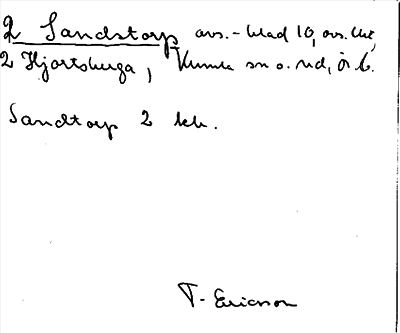 2 Sandstorp avs.-blad 10, avs. Ue,
2 Hjortsberga, Kumla sn o. hd, Ör l.
Sandtorp 2 kh.
T. Ericson